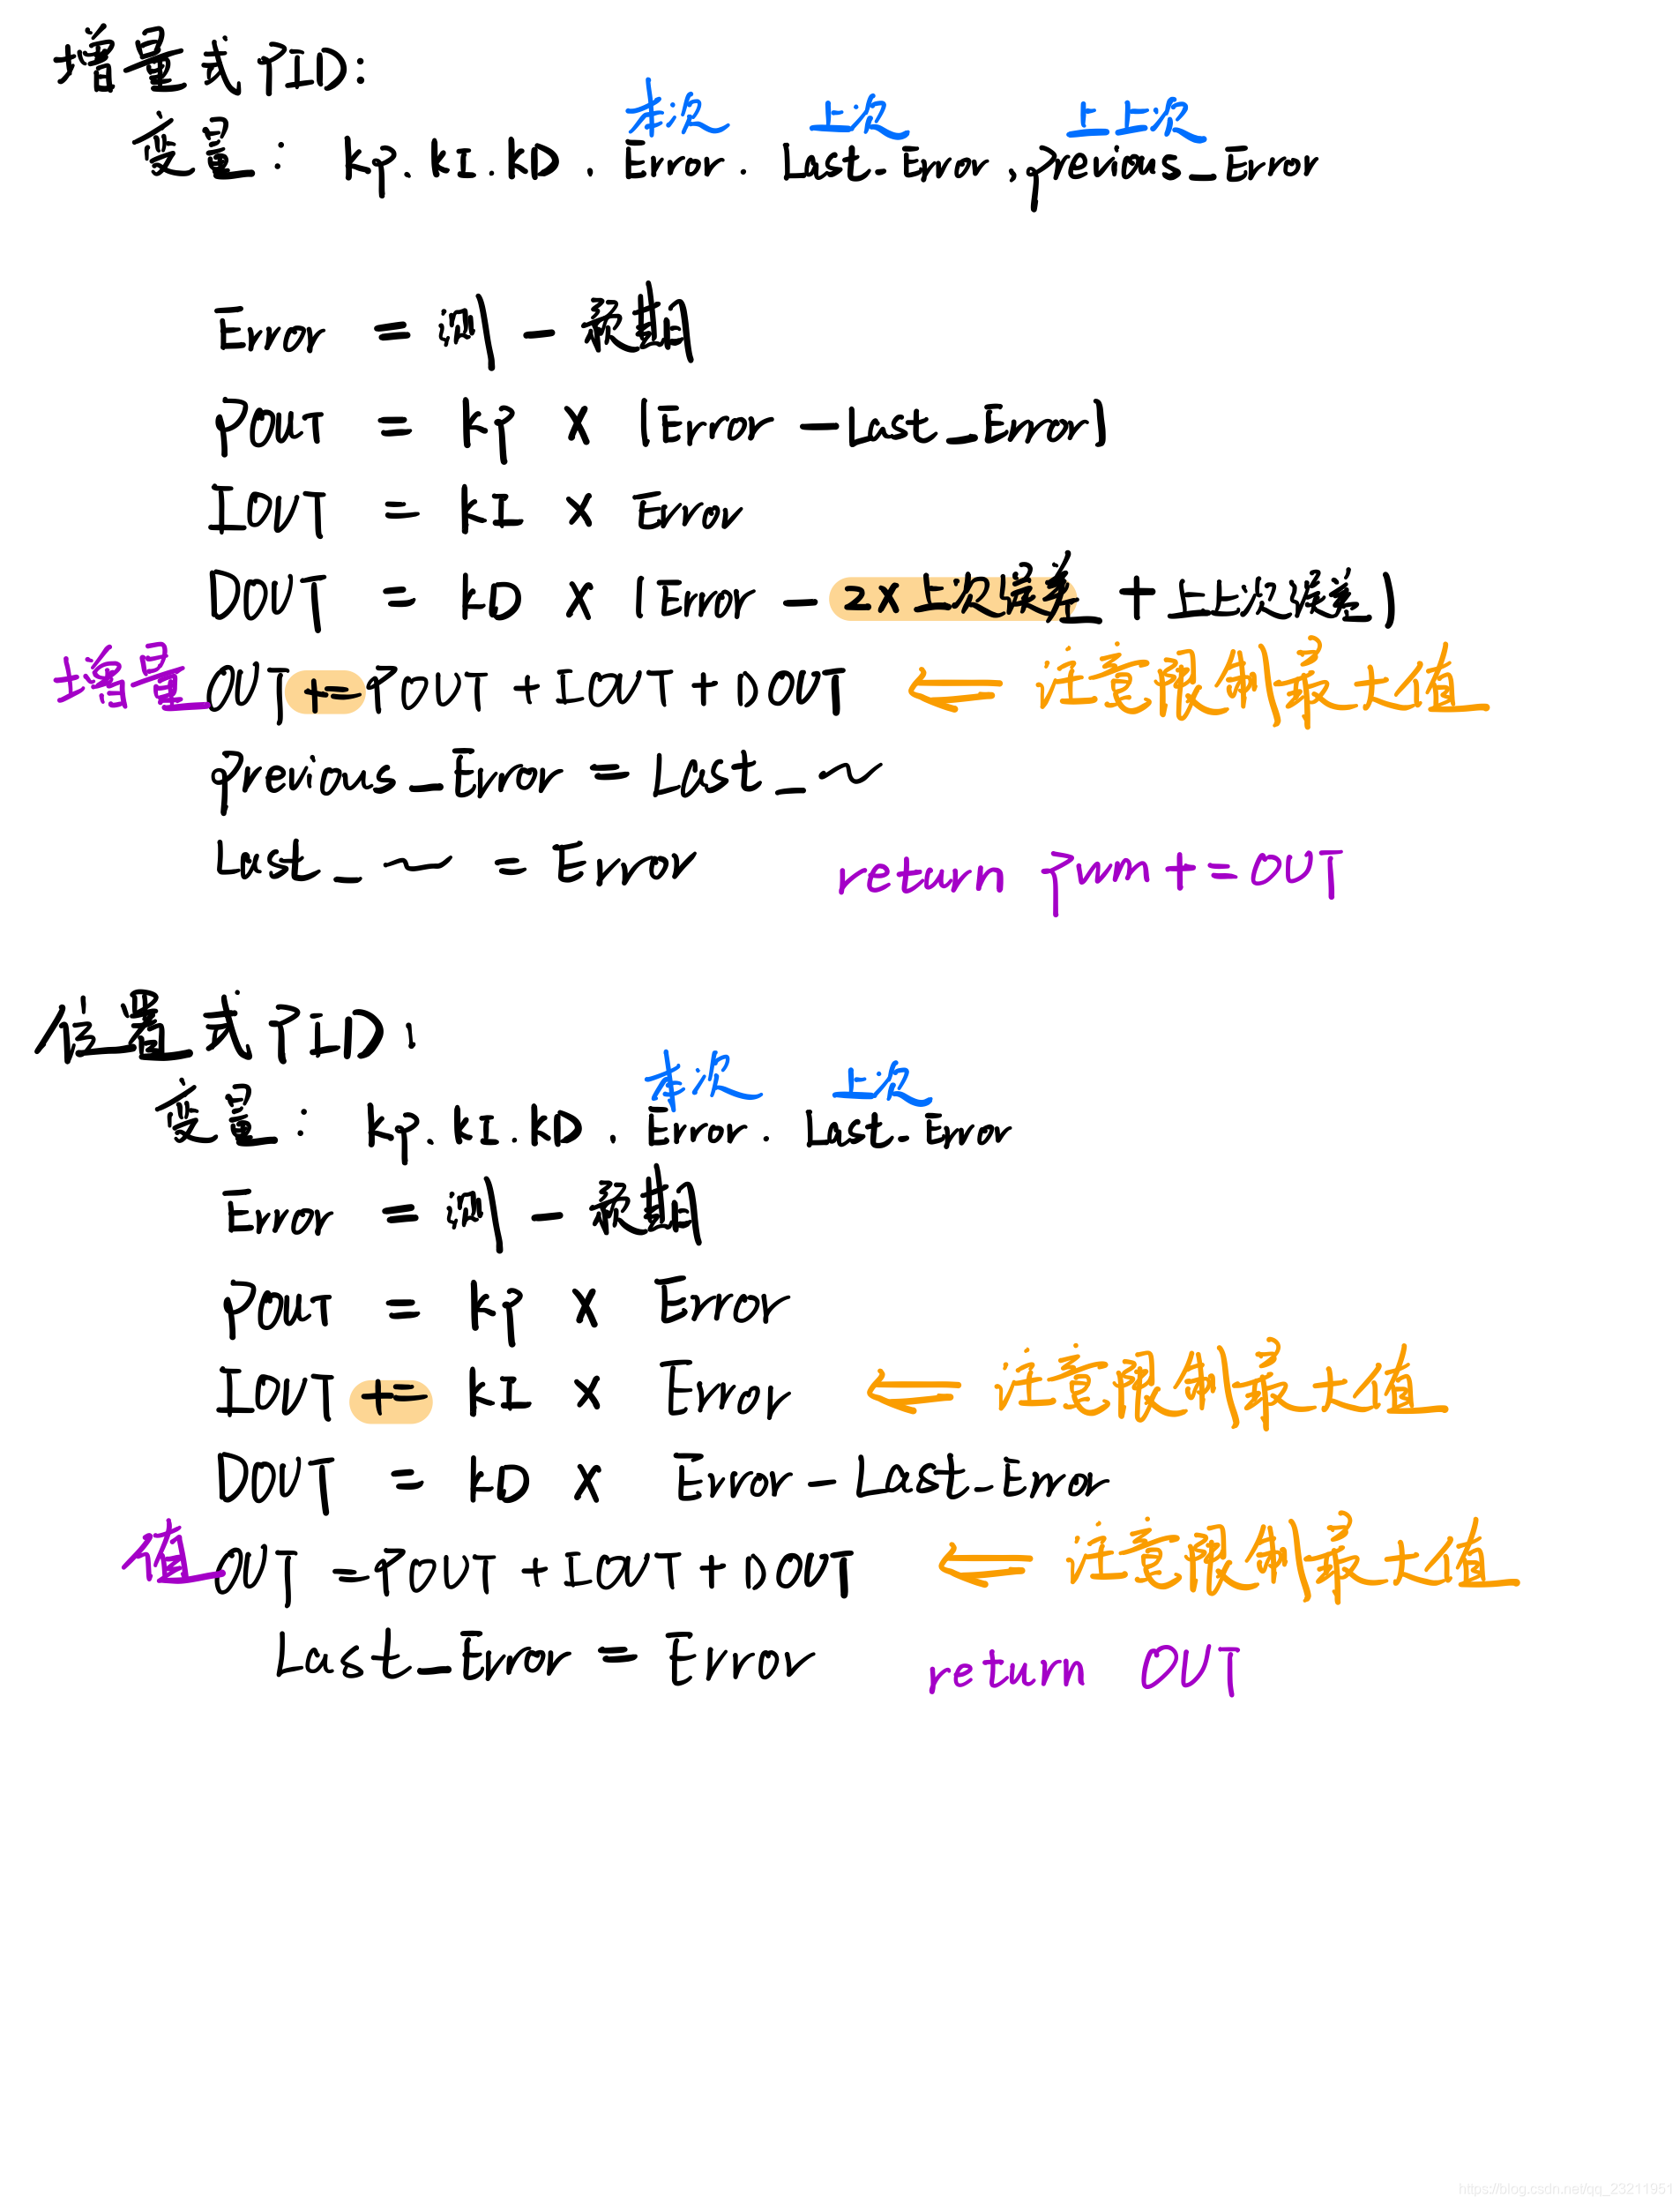 增量式PID:
本次 上次 上上次
变量: kp. kI. kD. Error. Last_Error, previous_Error
Error = 测 - 预期
POUT = kp × (Error - Last_Error)
IOUT = kI × Error
DOUT = kD × (Error - 2×上次误差 + 上上次误差)
增量 OUT += POUT + IOUT + DOUT ⇐ 注意限制最大值
previous_Error = Last_~
Last_~ = Error return pwm += OUT
位置式PID:
本次 上次
变量: kp. kI. kD. Error. Last_Error
Error = 测 - 预期
POUT = kp × Error
IOUT += kI × Error ⇐ 注意限制最大值
DOUT = kD × Error - Last_Error
值 OUT = POUT + IOUT + DOUT ⇐ 注意限制最大值
Last_Error = Error return OUT
https://blog.csdn.net/qq_23211951